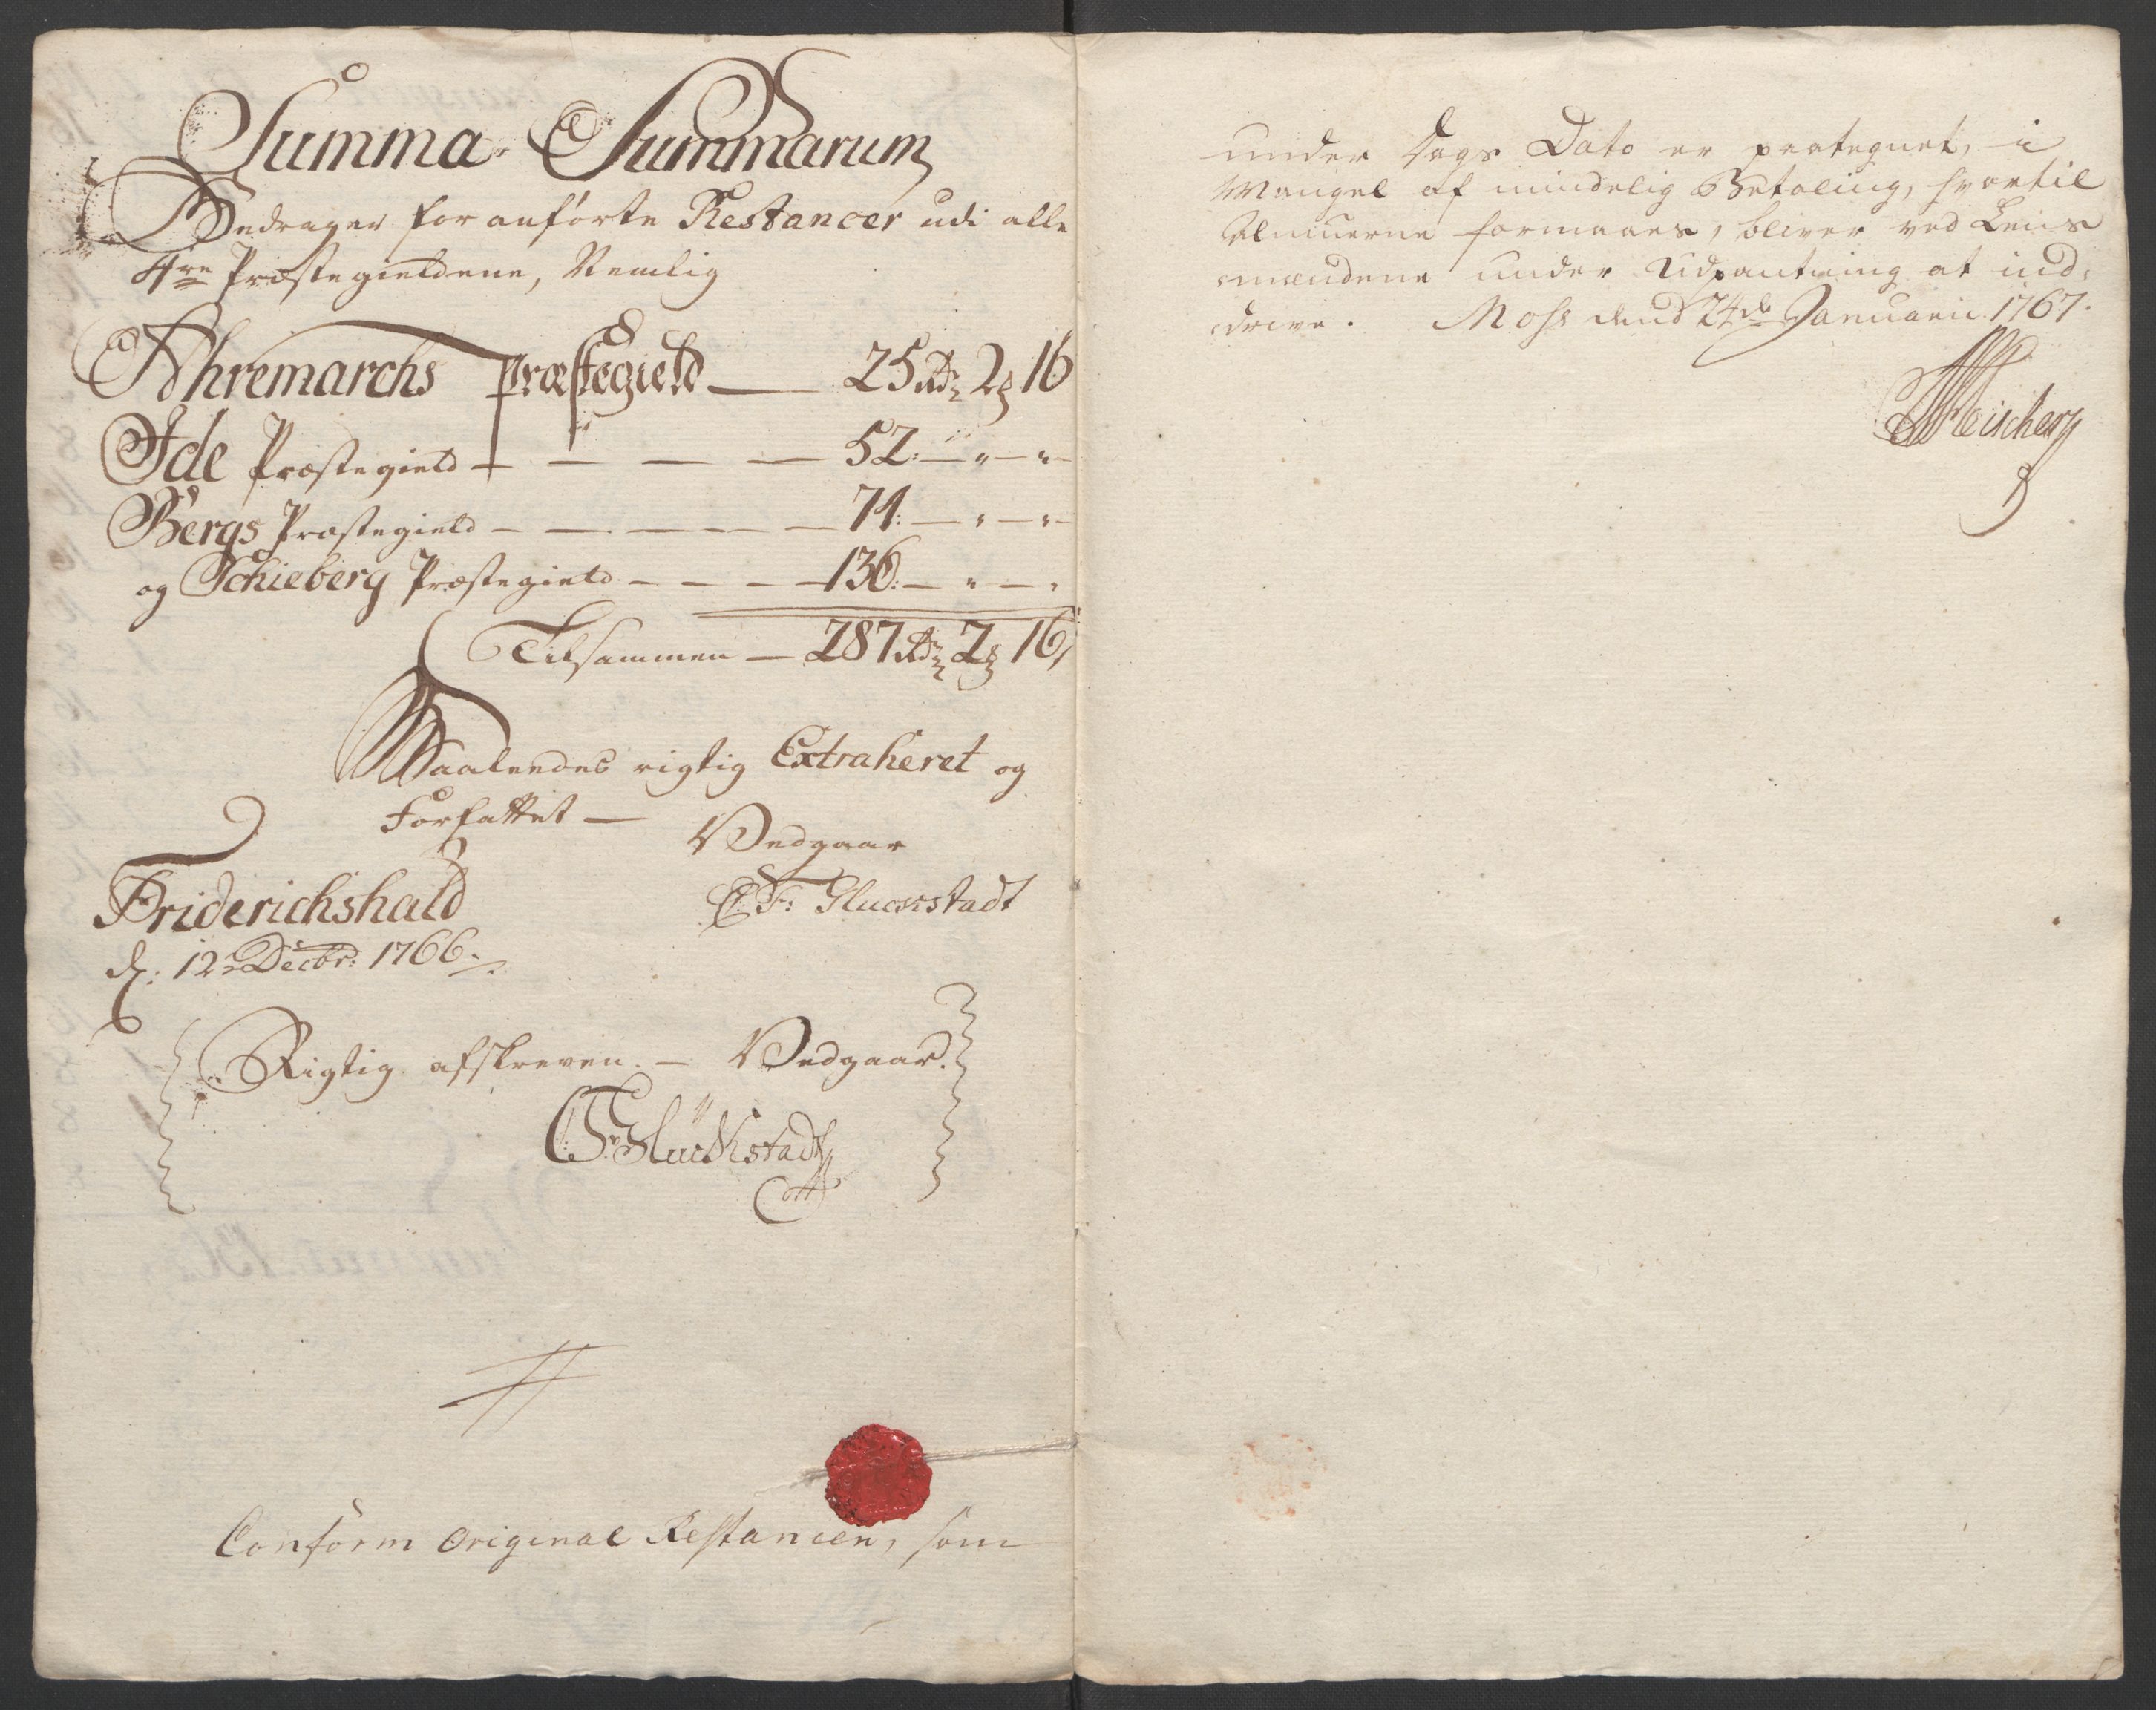 Summa Summarum
Bedrager foranførte Restancer udi alle
4re Præstegieldene, Nemlig
Ahremarchs Præstegield — 25 Rdr 2 16
Ide Præstegield — — — — 52: — " — " —
Bergs Præstegield — — — — — 74: — " — " —
og Schieberg Præstegield — — — 136: — " — "
Tilsammen — 287 Rdr 2 16
Saaleedes rigtig Extraheret og
Forfattet —
Vedgaar
Friderichshald
C: F: Gluckstadt
d: 12 Decbr: 1766.
Rigtig afskreven. — Vedgaar.
CF: Glückstadt
Conform Original Restancen, som
under Dags Dato er paategnet, i
Mangel af mindelig Betaling, hvortil
Almuerne formaaes, bliver ved Lens
mændene under Udpantning at ind-
drive. Moss dend 24de Januarii 1767.